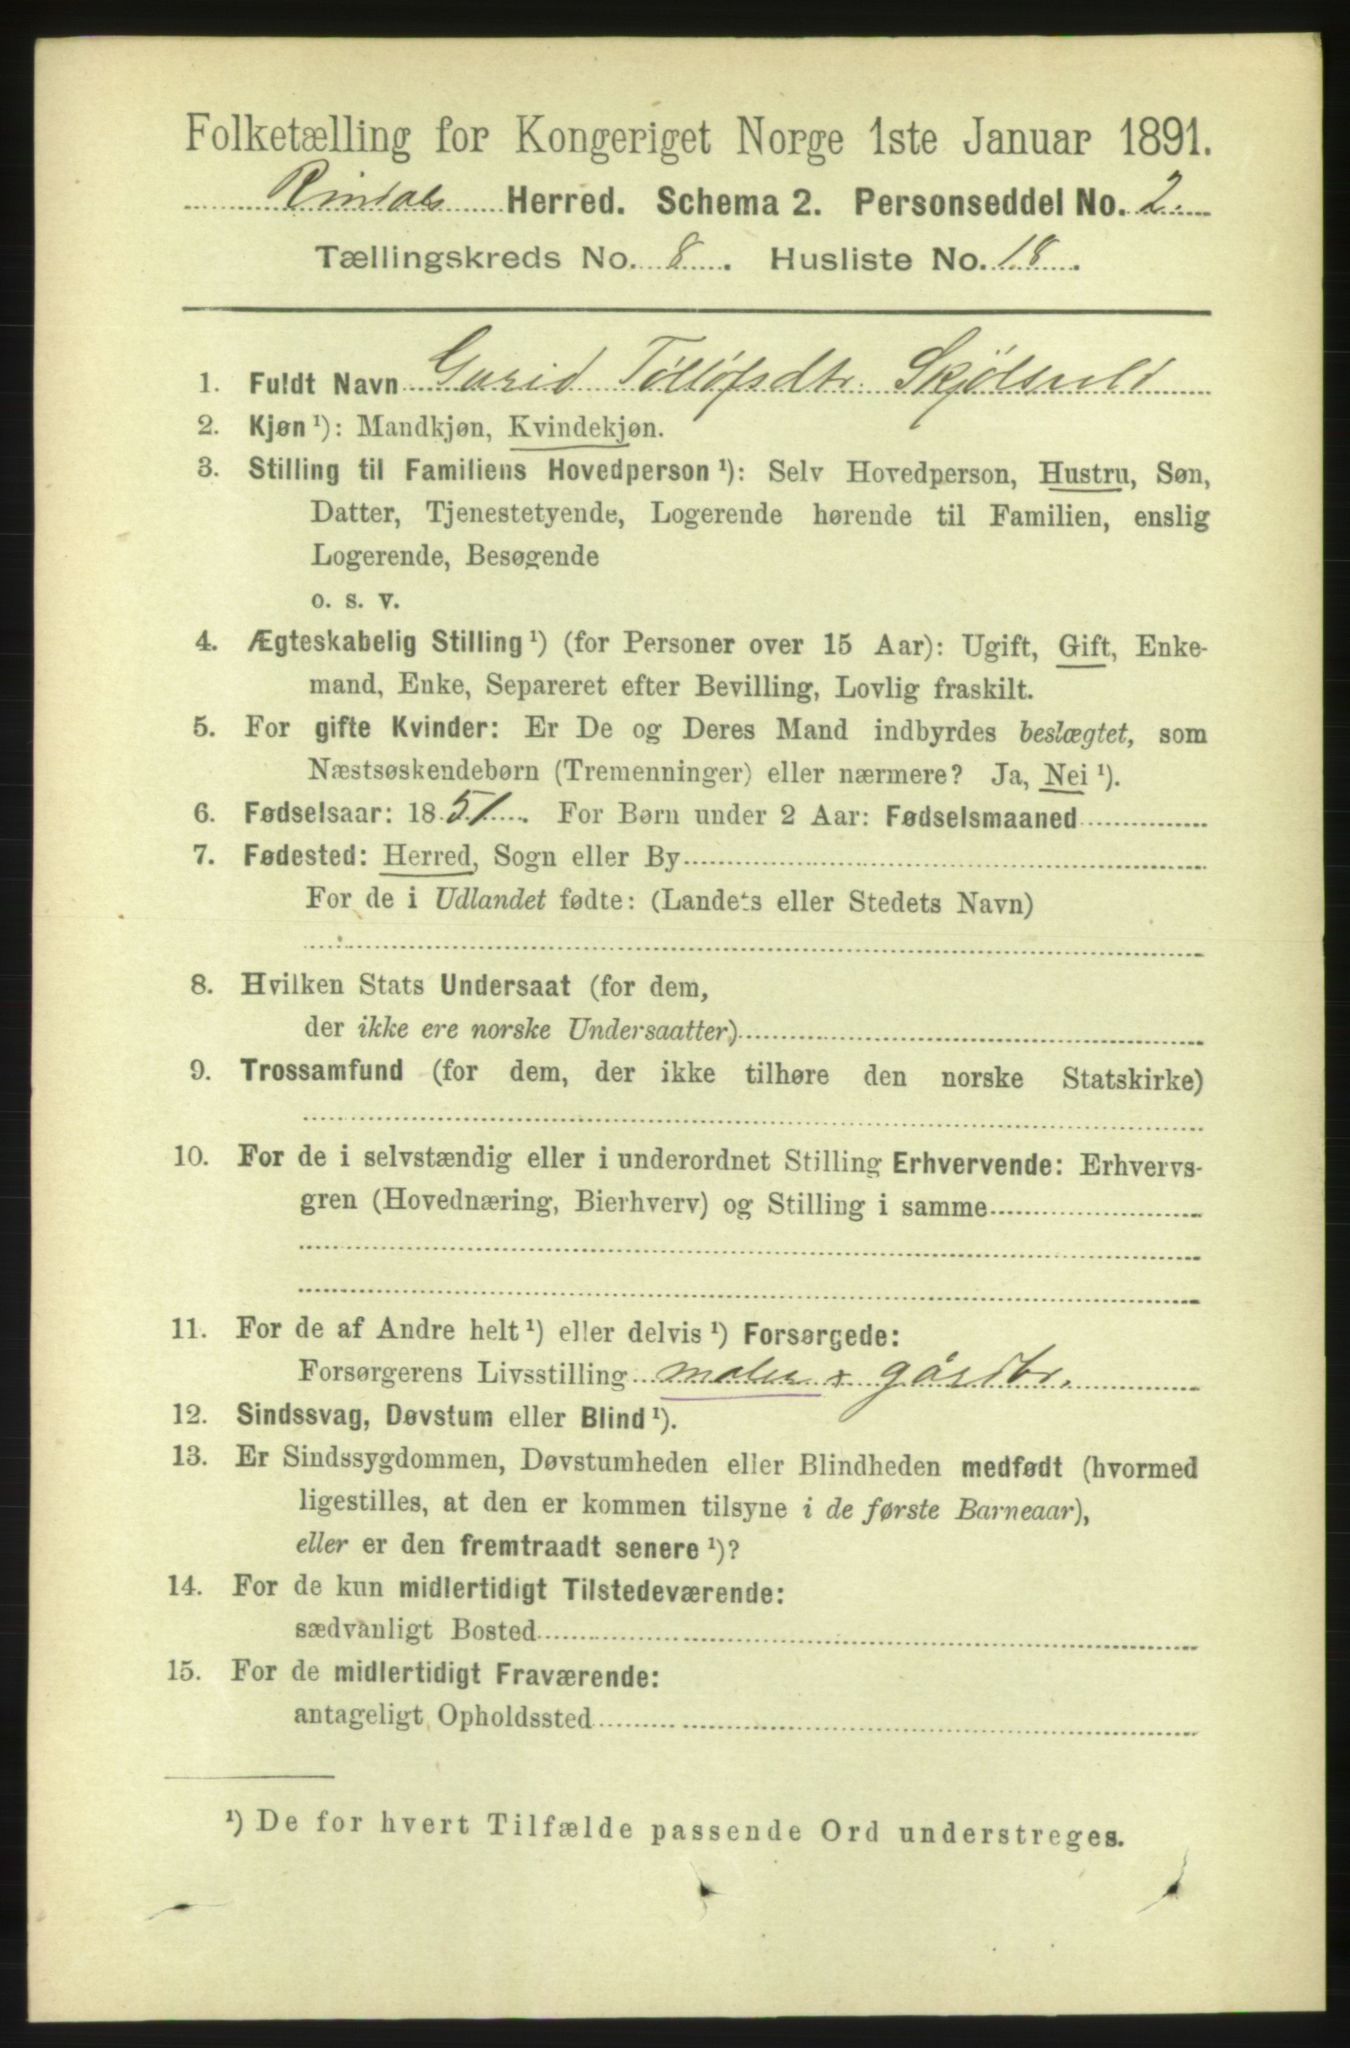 Folketælling for Kongeriget Norge 1ste Januar 1891.
Rindals Herred. Schema 2. Personseddel No. 2.
Tællingskreds No. 8. Husliste No. 18.
1. Fuldt Navn Gurid Tølløfsdtr. Skjölsvold
2. Kjøn ¹): Mandkjøn, Kvindekjøn.
3. Stilling til Familiens Hovedperson ¹): Selv Hovedperson, Hustru, Søn,
Datter, Tjenestetyende, Logerende hørende til Familien, enslig
Logerende, Besøgende
o. s. v.
4. Ægteskabelig Stilling ¹) (for Personer over 15 Aar): Ugift, Gift, Enke-
mand, Enke, Separeret efter Bevilling, Lovlig fraskilt.
5. For gifte Kvinder: Er De og Deres Mand indbyrdes beslægtet, som
Næstsøskendebørn (Tremenninger) eller nærmere? Ja, Nei ¹).
6. Fødselsaar: 1851. For Børn under 2 Aar: Fødselsmaaned
7. Fødested: Herred, Sogn eller By
For de i Udlandet fødte: (Landets eller Stedets Navn)
8. Hvilken Stats Undersaat (for dem,
der ikke ere norske Undersaatter)
9. Trossamfund (for dem, der ikke tilhøre den norske Statskirke)
10. For de i selvstændig eller i underordnet Stilling Erhvervende: Erhvervs-
gren (Hovednæring, Bierhverv) og Stilling i samme
11. For de af Andre helt ¹) eller delvis ¹) Forsørgede:
Forsørgerens Livsstilling maler x gårdbr.
12. Sindssvag, Døvstum eller Blind ¹).
13. Er Sindssygdommen, Døvstumheden eller Blindheden medfødt (hvormed
ligestilles, at den er kommen tilsyne i de første Barneaar),
eller er den fremtraadt senere ¹)?
14. For de kun midlertidigt Tilstedeværende:
sædvanligt Bosted
15. For de midlertidigt Fraværende:
antageligt Opholdssted
¹) De for hvert Tilfælde passende Ord understreges.